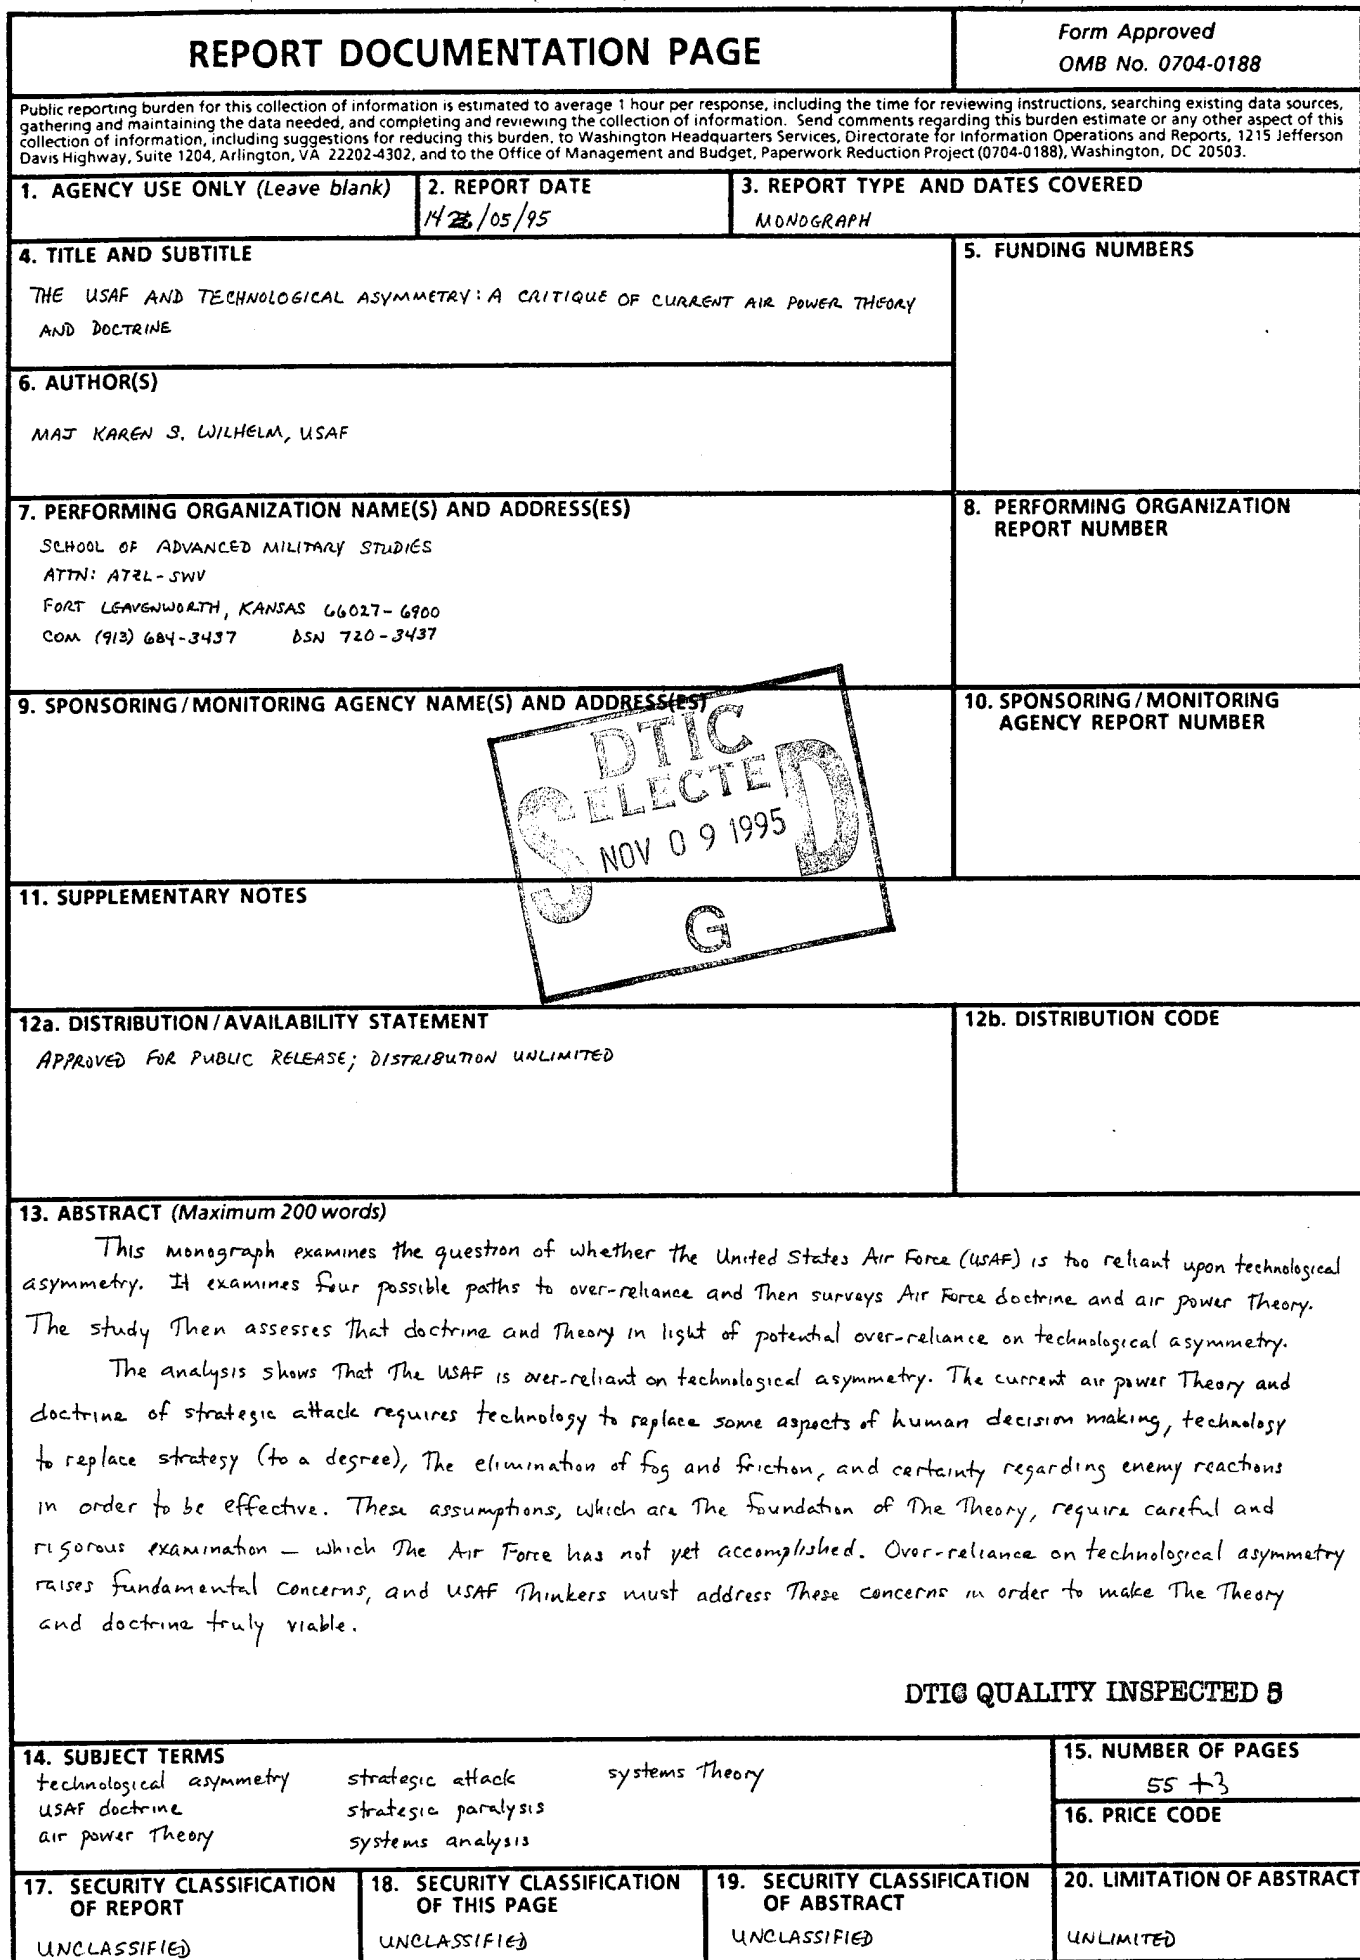 REPORT DOCUMENTATION PAGE
Form Approved
OMB No. 0704-0188
Public reporting burden for this collection of information is estimated to average 1 hour per response, including the time for reviewing instructions, searching existing data sources,
gathering and maintaining the data needed, and completing and reviewing the collection of information. Send comments regarding this burden estimate or any other aspect of this
collection of information, including suggestions for reducing this burden, to Washington Headquarters Services, Directorate for Information Operations and Reports, 1215 Jefferson
Davis Highway, Suite 1204, Arlington, VA 22202-4302, and to the Office of Management and Budget, Paperwork Reduction Project (0704-0188), Washington, DC 20503.
1. AGENCY USE ONLY (Leave blank)
2. REPORT DATE
14 /05/95
3. REPORT TYPE AND DATES COVERED
MONOGRAPH
4. TITLE AND SUBTITLE
THE USAF AND TECHNOLOGICAL ASYMMETRY: A CRITIQUE OF CURRENT AIR POWER THEORY
AND DOCTRINE
5. FUNDING NUMBERS
6. AUTHOR(S)
MAJ KAREN S. WILHELM, USAF
7. PERFORMING ORGANIZATION NAME(S) AND ADDRESS(ES)
SCHOOL OF ADVANCED MILITARY STUDIES
ATTN: ATZL-SWV
FORT LEAVENWORTH, KANSAS 66027-6900
COM (913) 684-3437 DSN 720-3437
8. PERFORMING ORGANIZATION
REPORT NUMBER
9. SPONSORING/MONITORING AGENCY NAME(S) AND ADDRESS(ES)
DTIC
SELECTED
NOV 09 1995
G
10. SPONSORING/MONITORING
AGENCY REPORT NUMBER
11. SUPPLEMENTARY NOTES
12a. DISTRIBUTION/AVAILABILITY STATEMENT
APPROVED FOR PUBLIC RELEASE; DISTRIBUTION UNLIMITED
12b. DISTRIBUTION CODE
13. ABSTRACT (Maximum 200 words)
This monograph examines the question of whether the United States Air Force (USAF) is too reliant upon technological
asymmetry. It examines four possible paths to over-reliance and Then surveys Air Force doctrine and air power Theory.
The study Then assesses That doctrine and Theory in light of potential over-reliance on technological asymmetry.
The analysis shows That The USAF is over-reliant on technological asymmetry. The current air power Theory and
doctrine of strategic attack requires technology to replace some aspects of human decision making, technology
to replace strategy (to a degree), The elimination of fog and friction, and certainty regarding enemy reactions
in order to be effective. These assumptions, which are The foundation of The Theory, require careful and
rigorous examination — which The Air Force has not yet accomplished. Over-reliance on technological asymmetry
raises fundamental concerns, and USAF Thinkers must address These concerns in order to make The Theory
and doctrine truly viable.
DTIC QUALITY INSPECTED
14. SUBJECT TERMS
technological asymmetry strategic attack systems Theory
USAF doctrine strategic paralysis
air power Theory systems analysis
15. NUMBER OF PAGES
55 +3
16. PRICE CODE
17. SECURITY CLASSIFICATION
OF REPORT
UNCLASSIFIED
18. SECURITY CLASSIFICATION
OF THIS PAGE
UNCLASSIFIED
19. SECURITY CLASSIFICATION
OF ABSTRACT
UNCLASSIFIED
20. LIMITATION OF ABSTRACT
UNLIMITED